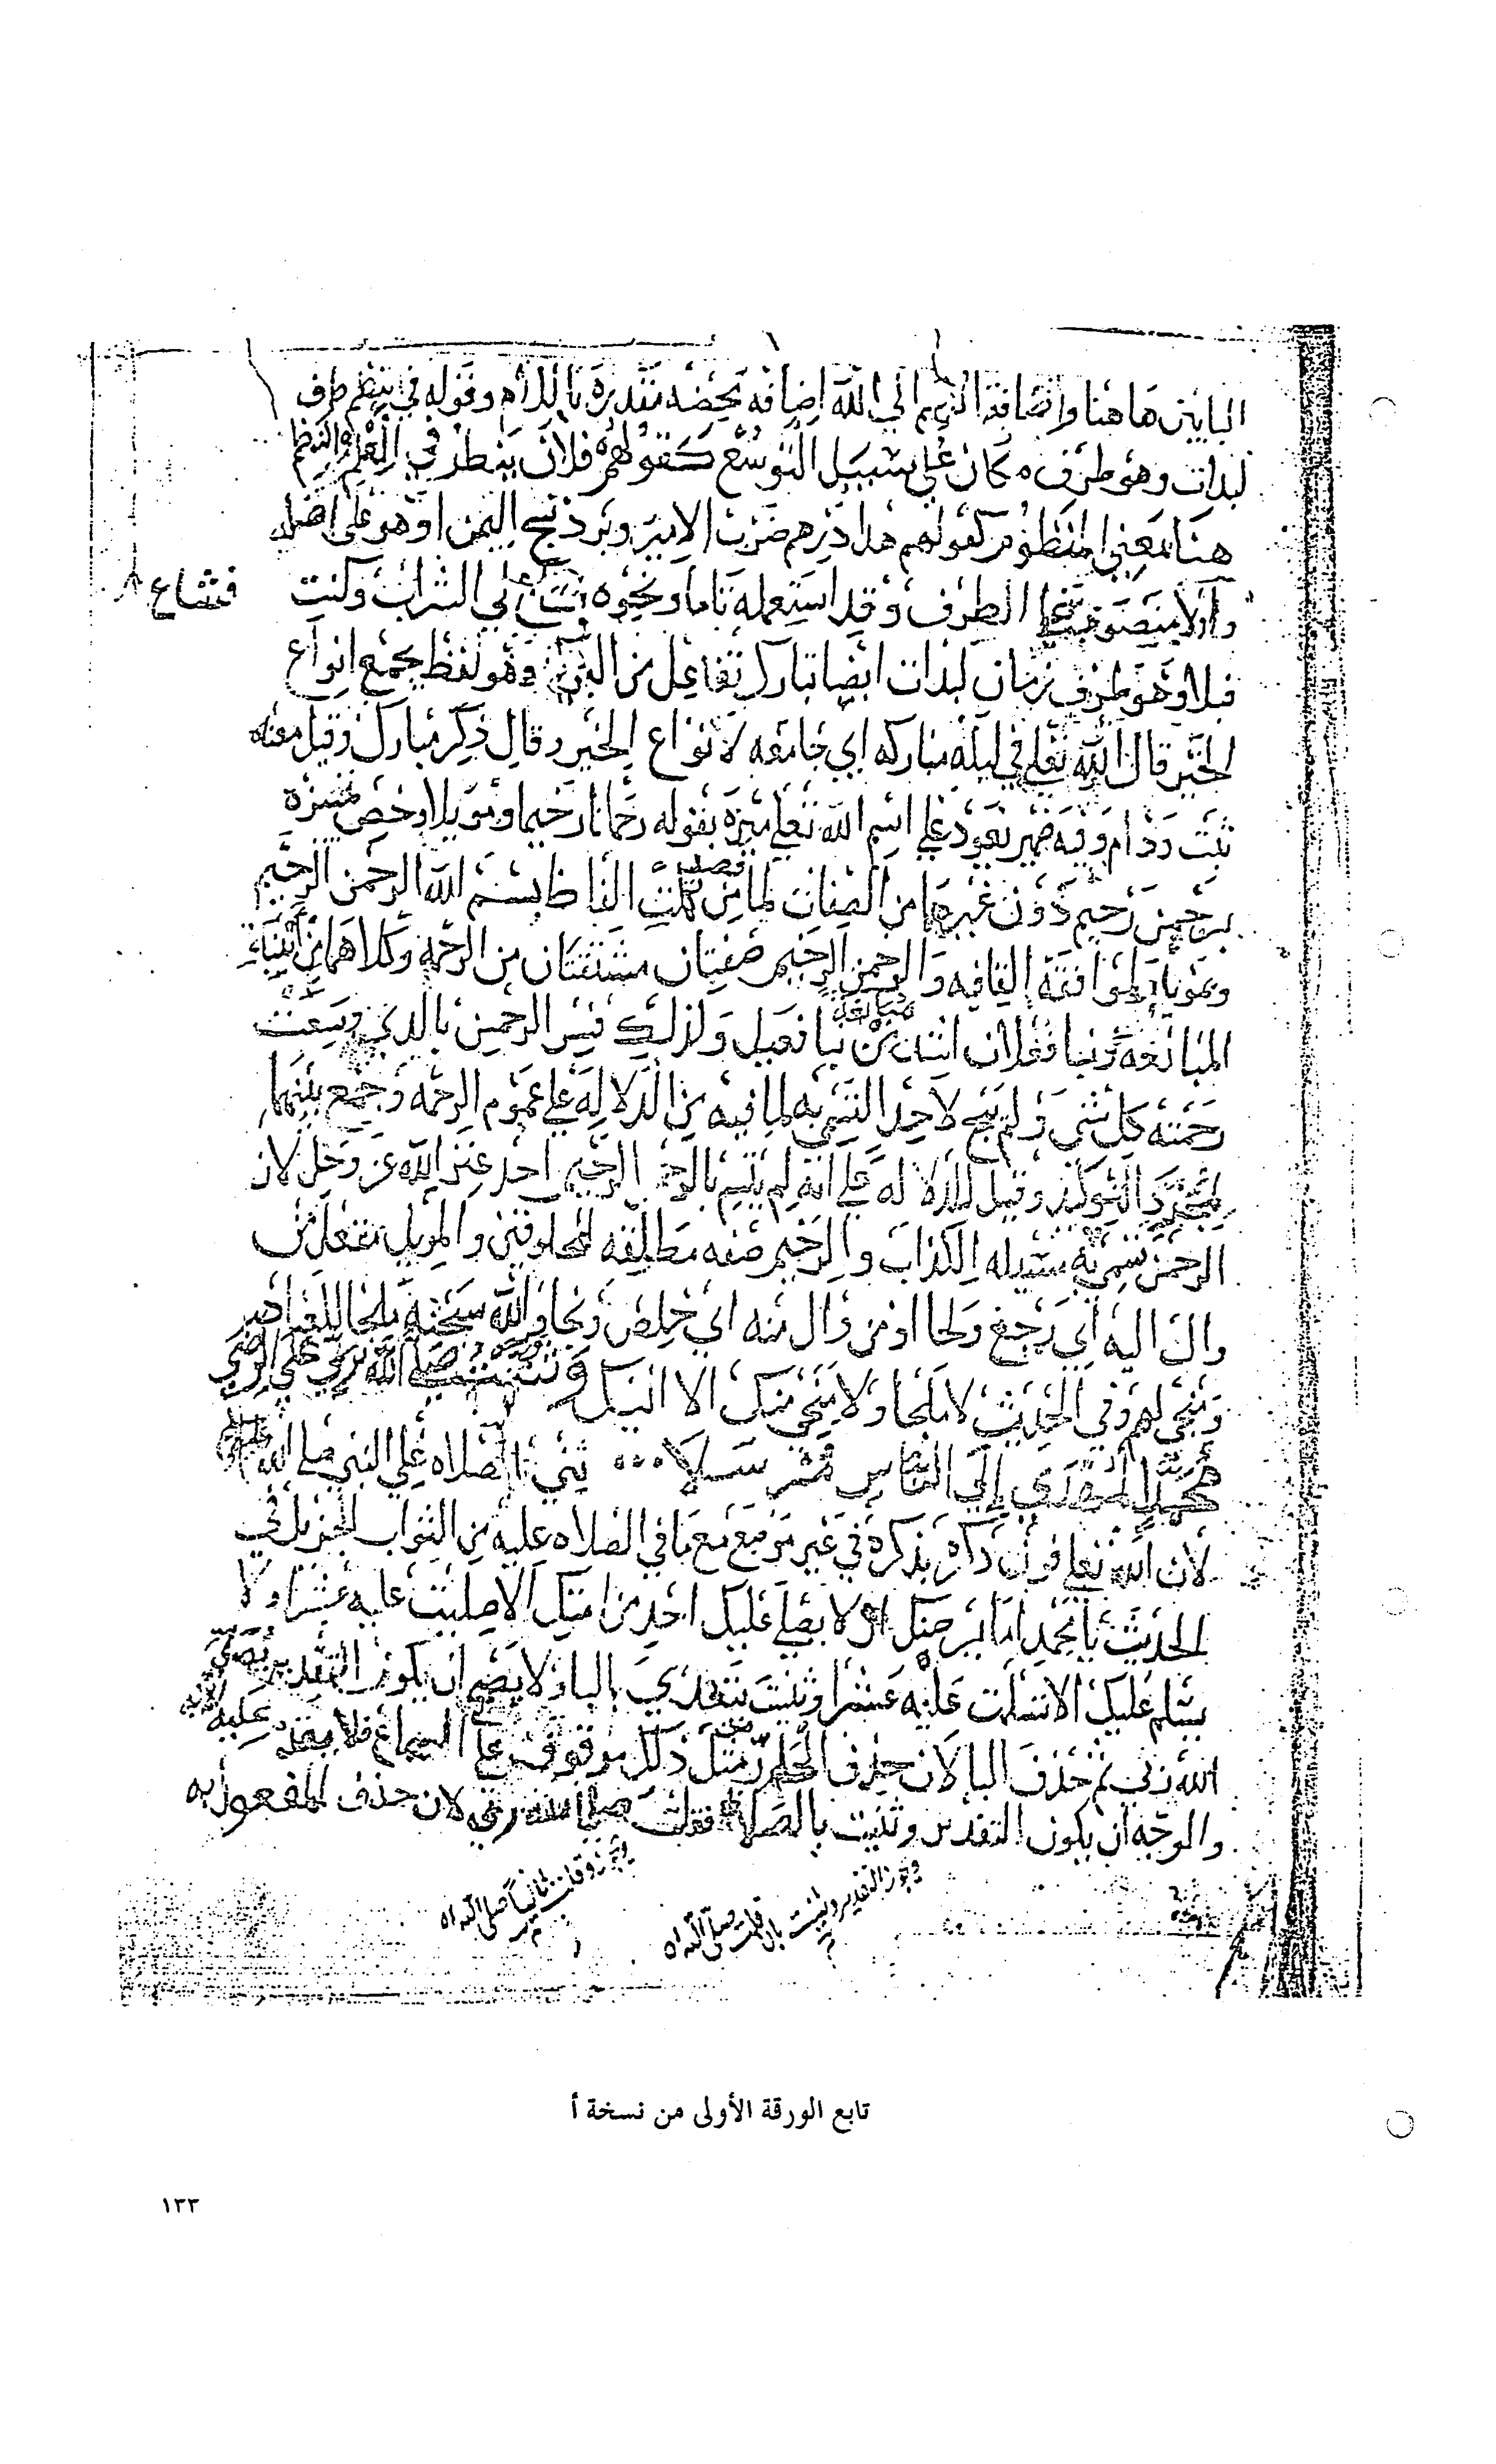 البايين هاهنا واضافة الاسم الي الله اضافه محضه مقدره باللام وقوله في النظم ظرف
لبدات وهو ظرف مكان علي سبيل التوسع كقولهم فلان ينظر في العلم والنظم
هنا بمعني المنظوم كقولهم هذا درهم ضرب الامير وبرد نسج اليمن او هو علي اصله
واولا منصوب علي الظرف وقد استعمله تاما ونحوه
فساغ لي الشراب وكنت
قبلا وهو ظرف زمان لبدات ايضا تبارك تفاعل من البركة وهو لفظ يجمع انواع
الخير قال الله تعلي في ليلة مباركه اي جامعه لانواع الخير وقال ذكر مبارك وقيل معناه
ثبت ودام وفيه ضمير يعود علي اسم الله تعلي ميزه بقوله رحمانا رحيما وموئلا وخص تمييزه
برحمن رحيم دون غيرها من الصفات لما من الفاظ بسم الله الرحمن الرحيم
وبموئلا لموافقة القافيه والرحمن الرحيم صفتان مشتقتان من الرحمه وكلاهما من ابنية
المبالغة وبنا فعلان اشد مبالغة من بنا فعيل ولذلك فسر الرحمن بالذي وسعت
رحمته كل شي ولم يبح لاحد التسمي به لما فيه من الدلالة علي عموم الرحمه وجمع بينهما
لمجرد التوكيد وقيل للدلاله علي انه لم يتسم بالرحمن الرحيم احد غير الله عز وجل لان
الرحمن تسمي به مسيلمه الكذاب والرحيم صفه مطلقه للمخلوقين والموئل مفعل من
وال اليه اي رجع ولجا او من وال منه اي خلص ونجا والله سبحنه ملجا للعباد
ومنجي لهم وفي الحديث لا ملجا ولا منجي منك الا اليك وثنيت صلي الله ربي علي الرضي
محمد المهدي إلي الناس مرسلا ... ثني بالصلاه علي النبي صلي الله عليه وسلم
لان الله تعلي قرن ذكره بذكره في غير موضع مع ما في الصلاه عليه من الثواب الجزيل في
الحديث يا محمد اما يرضيك ان لا يصلي عليك احد من امتك الا صليت عليه عشرا ولا
يسلم عليك الا سلمت عليه عشرا وثنيت يتعدي بالبا ولا يصح ان يكون التقدير بصلي
الله ربي ثم حذف البا لان حذف الجار من مثل ذلك موقوف علي السماع فلا يقدم عليه
والوجه ان يكون التقدير وثنيت بالصلاة فقلت صلي الله ربي لان حذف المفعول به
ويجوز التقدير وثنيت بان قلت صلى الله اه
ويجوز وقلت ثانياً صلى الله اه
تابع الورقة الأولى من نسخة أ
١٣٣